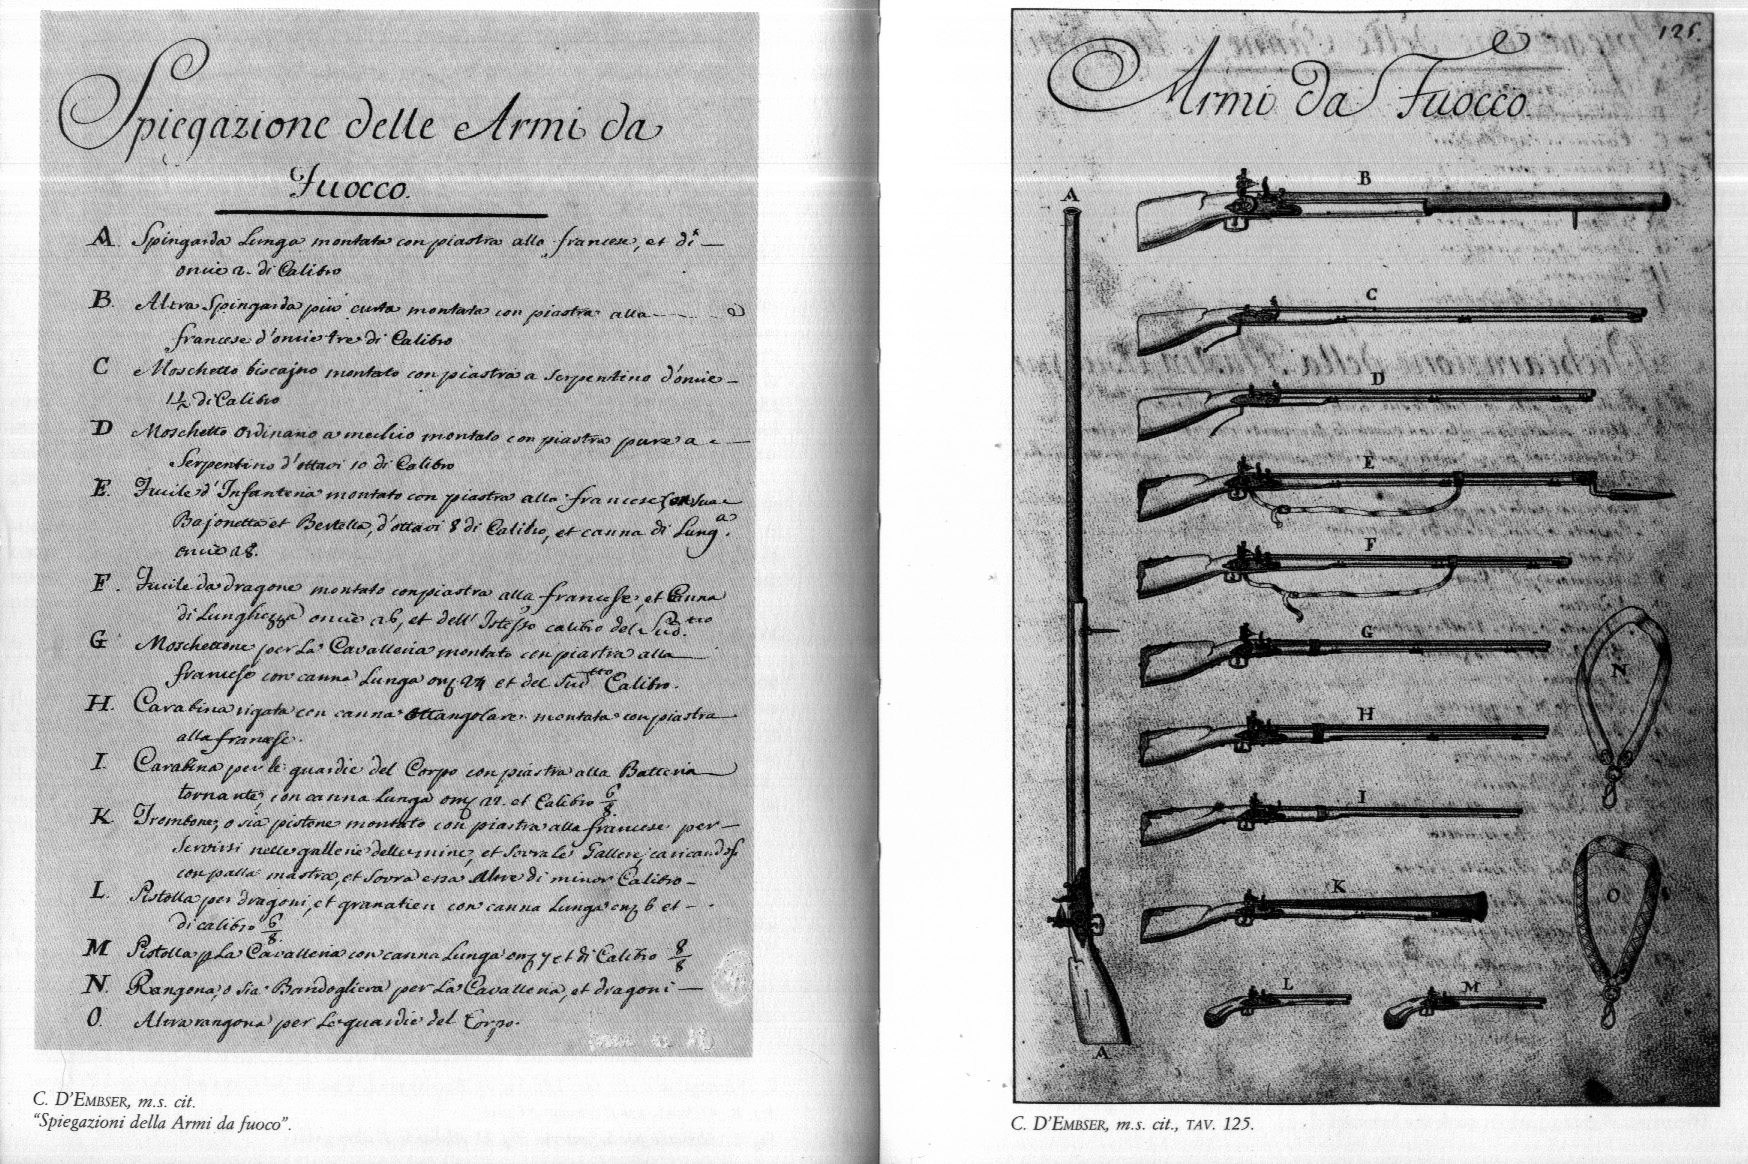 Spiegazione delle Armi da
Fuocco.
A. Spingarda Lunga montata con piastra alla francese, et di —
oncie 2. di Calibro
B. Altra Spingarda più curta montata con piastra alla
francese d'oncie tre di Calibro
C Moschetto biscajno montato con piastra a Serpentino d'oncie —
1½ di Calibro
D Moschetto ordinario a mechio montato con piastra pure a —
Serpentino d'ottavi 10 di Calibro
E. Fucile d'Infanteria montato con piastra alla francese con sua
Bajonetta et Bertella, d'ottavi 8 di Calibro, et canna di Lunga.
oncie 28.
F. Fucile da dragone montato con piastra alla francese, et Canna
di Lunghezza oncie 26, et dell' Istesso calibro del Sudtto.
G Moschettone per La Cavalleria montato con piastra alla
francese con canna Lunga onz 24 et del Sudtto Calibro.
H. Carabina rigata con canna ottangolare montata con piastra
alla francese.
I. Carabina per le guardie del Corpo con piastra alla Batteria
tornante, con canna Lunga onz 22. et Calibro 6/8
K Trombone, o sia pistone montato con piastra alla francese per —
Servirsi nelle gallerie delle mine, et Sovra Le Gallere, caricandosi
con palla mastra, et Sovra essa Altre di minor Calibro —
L. Pistolla per dragoni, et granatieri con canna Lunga onz 6 et —
di calibro 6/8.
M Pistolla p La Cavalleria con canna Lunga onz 7 et di Calibro 8/8
N. Rangona, o sia Bandogliera per La Cavalleria, et dragoni —
O. Altra rangona per Le guardie del Corpo.
C. D'EMBSER, m.s. cit.
"Spiegazioni della Armi da fuoco".
125.
Armi da Fuocco
A
B
C
D
E
F
G
H
I
K
L
M
N
O
A
C. D'EMBSER, m.s. cit., TAV. 125.